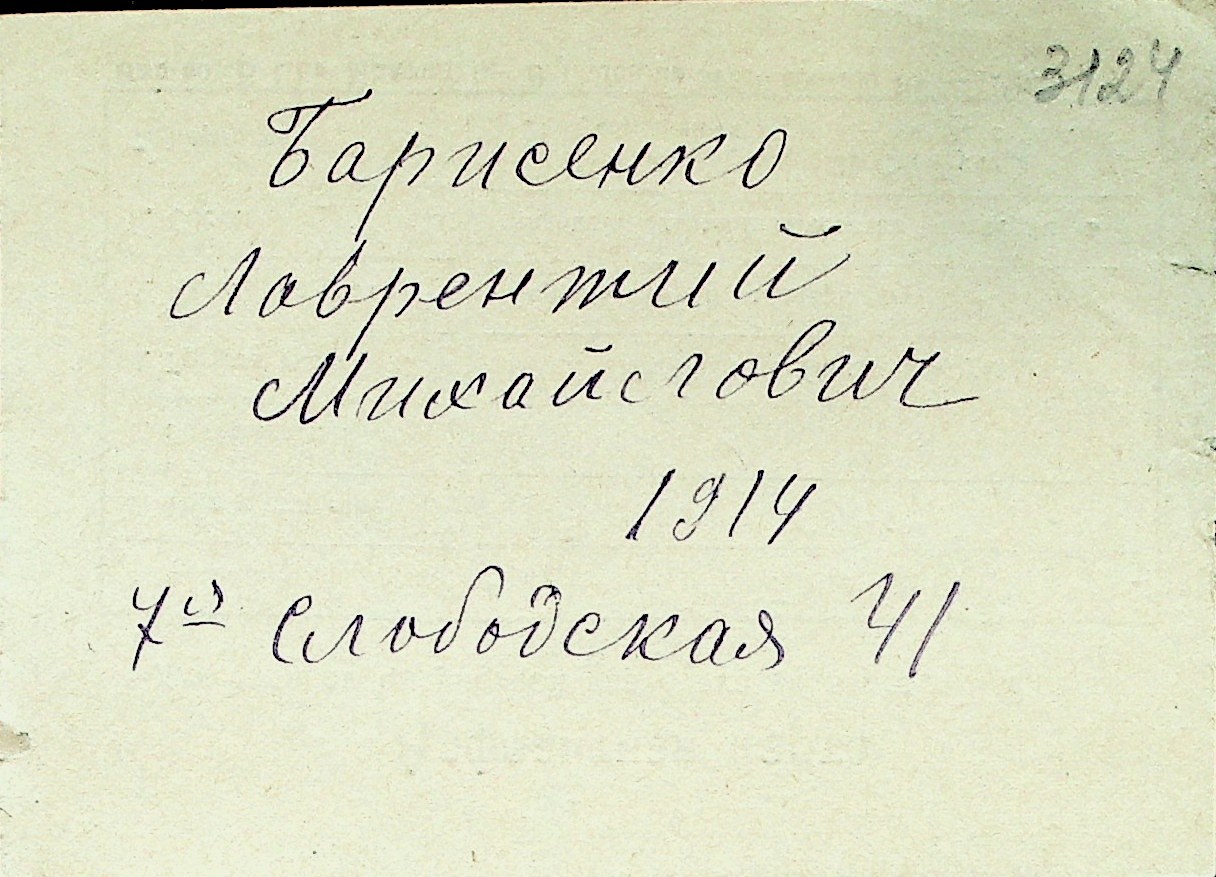 3124
Барисенко
Лаврентий
Михайлович
1914
7я Слободская 41